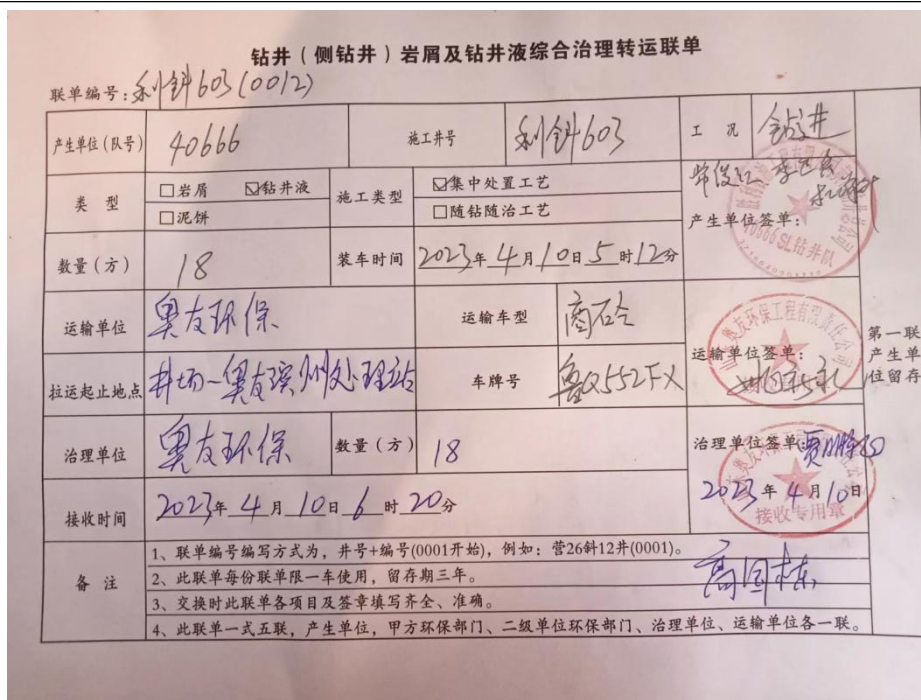 钻井（侧钻井）岩屑及钻井液综合治理转运联单
联单编号：利斜603(0012)
产生单位（队号） 40666 施工井号 利斜603 工 况 钻井
类 型 □岩屑 ☑钻井液 □泥饼 施工类型 ☑集中处置工艺 □随钻随治工艺
产生单位签单：
40666SL钻井队
数量（方） 18 装车时间 2023年4月10日5时12分
运输单位 奥友环保 运输车型 商砼
运输单位签单：
拉运起止地点 井场-奥友滨州处理站 车牌号 鲁Q552FX
第一联
产生单
位留存
治理单位 奥友环保 数量（方） 18 治理单位签单：
接收时间 2023年4月10日6时20分 2023年4月10日
接收专用章
备 注
1、联单编号编写方式为，井号+编号(0001开始)，例如：营26斜12井(0001)。
2、此联单每份联单限一车使用，留存期三年。
3、交换时此联单各项目及签章填写齐全、准确。
4、此联单一式五联，产生单位，甲方环保部门、二级单位环保部门、治理单位、运输单位各一联。
高国栋